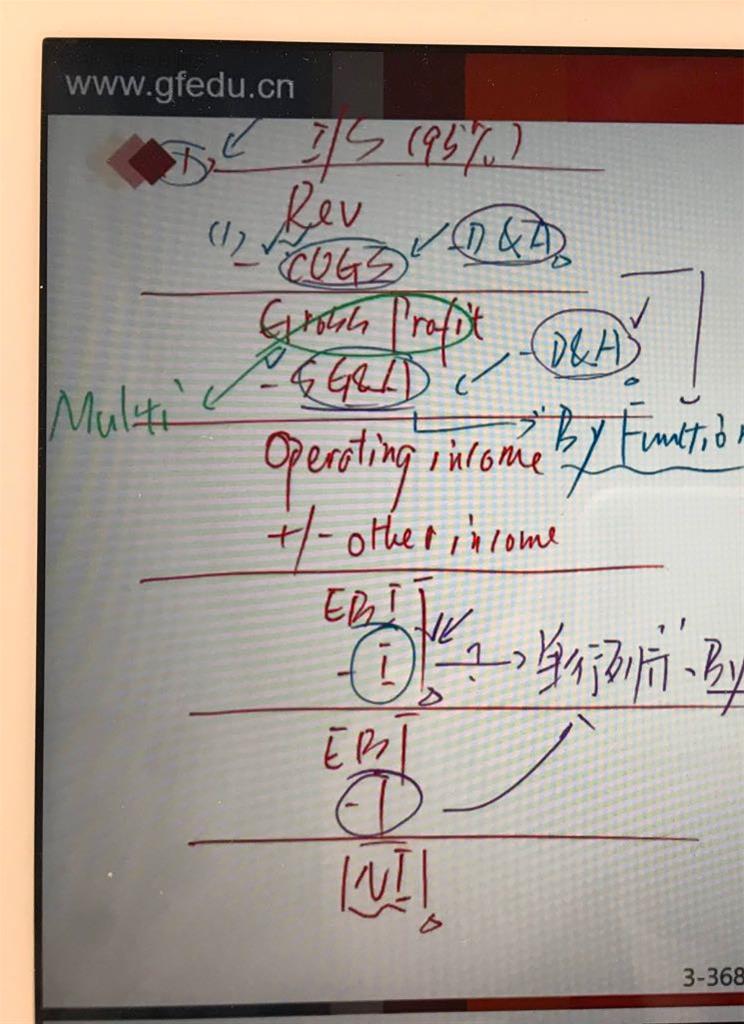 www.gfedu.cn
I/S (95%)
Rev
(1) - COGS - D&A
Gross Profit
- SG&A - D&A
Multi
By Function
Operating income
+/- other income
EBIT
- I ? 单行列示 By
EBT
- T
NI
3-368